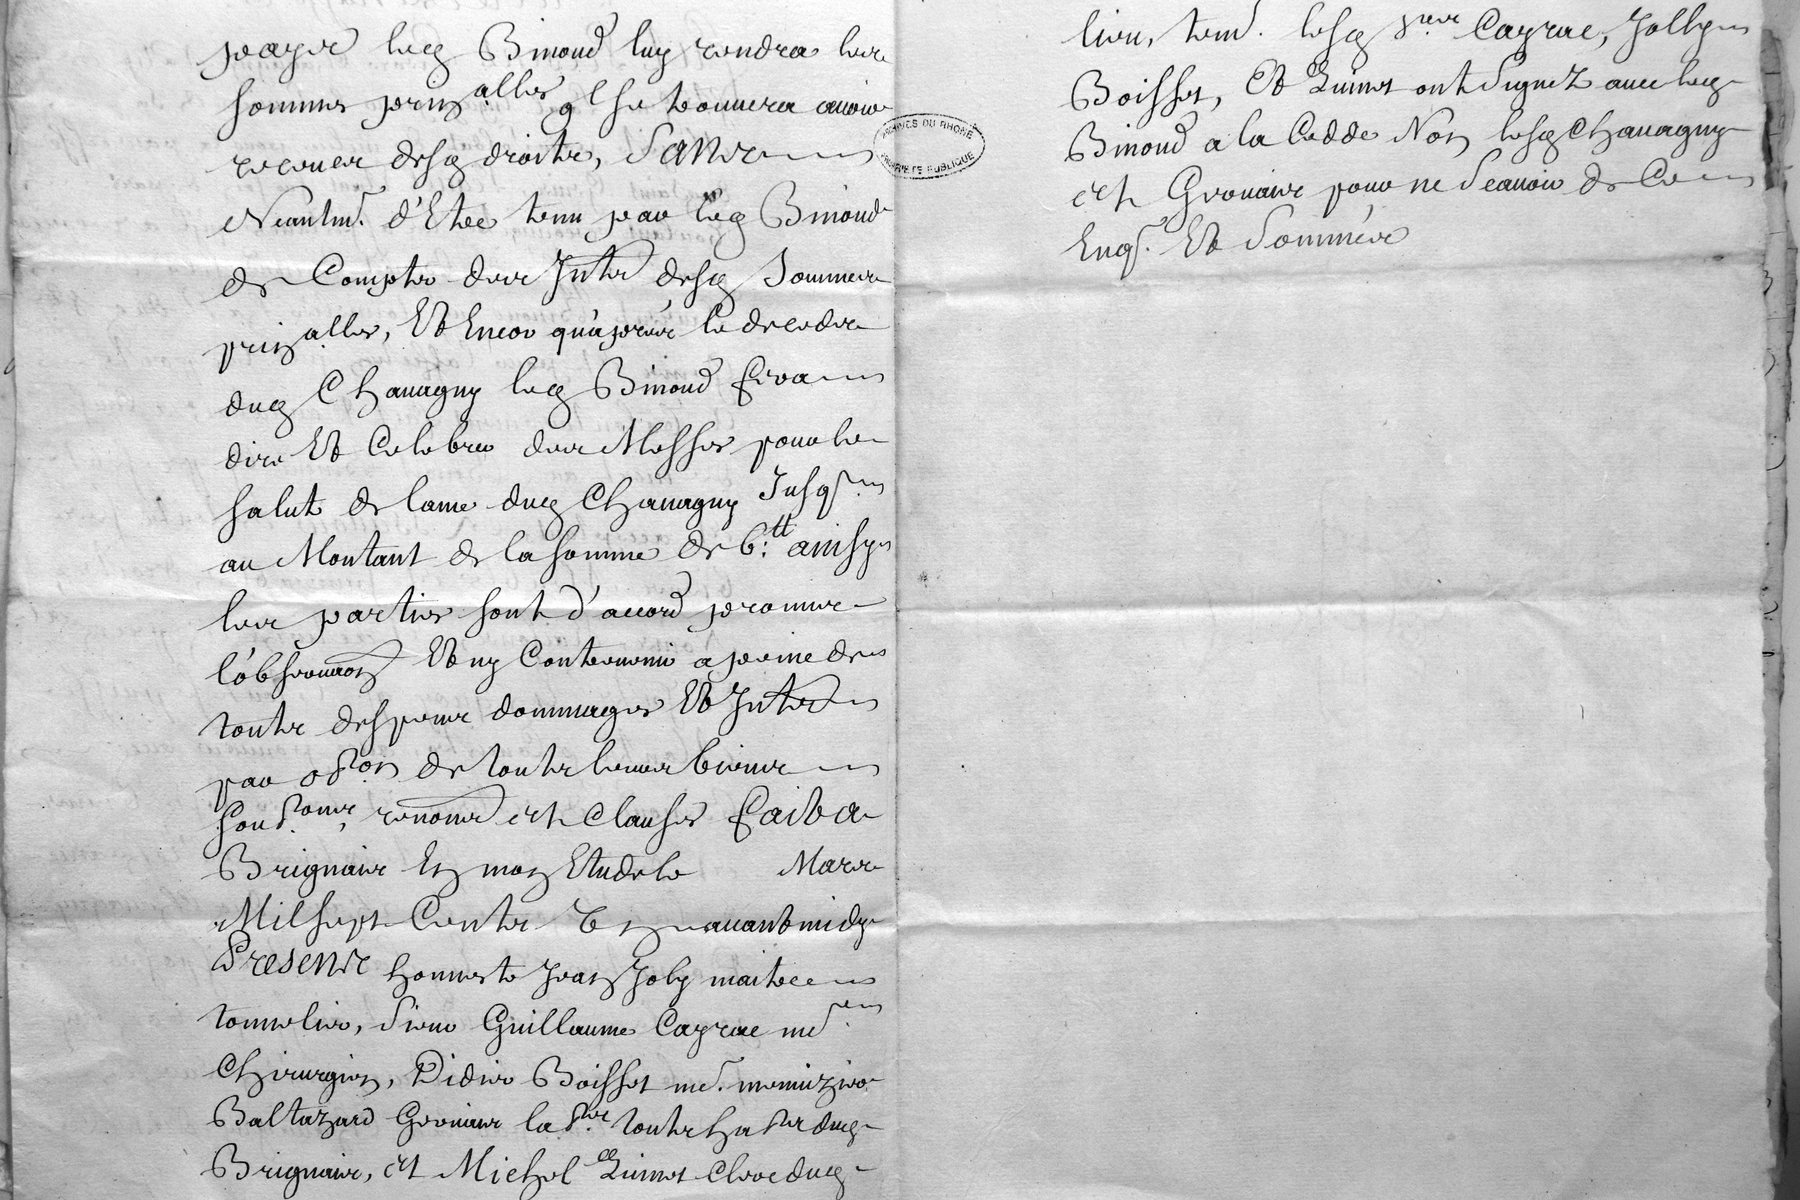 payer led Binoud luy rendra les
sommes prinalles ql se trouvera avoir
receues desd droits, Sans
Neantmt. d'Etre tenu par led Binoud
de Compter des Intts desd sommes
prinalles, Et Encor qu'apres le decedz
dud Chavagny led Binoud fera
dire Et Celebrer des Messes pour le
salut de lame dud Chavagny Jusqs.
au Montant de la somme de 6:tt ainsy
les parties sont d'accord promis
l'observaon Et ny Contrevenir a peine de
touts despens dommages Et Intts
par obon de touts leurs biens
soubons, renons et clauses fait a
Brignais En mon Etude le Mars
Mil sept Cents avant midy
Presents honneste Jean Joly maitre
tonnelier, sieur Guillaume Cayrac me.
Chirurgien, Didier Boisset me. menuizier
Baltazard Gervais labr. touts habts dud
Brignais, et Michel Quinet clerc dud
lieu, tem. lesd srs Cayrac, Jolly
Boisset, Et Quinet ont signez avec led
Binoud a la Cedde Non lesd Chavagny
et Gervais pour ne scavoir de Ce
Enqs. Et sommés
ARCHIVES DU RHONE
PROPRIETE PUBLIQUE